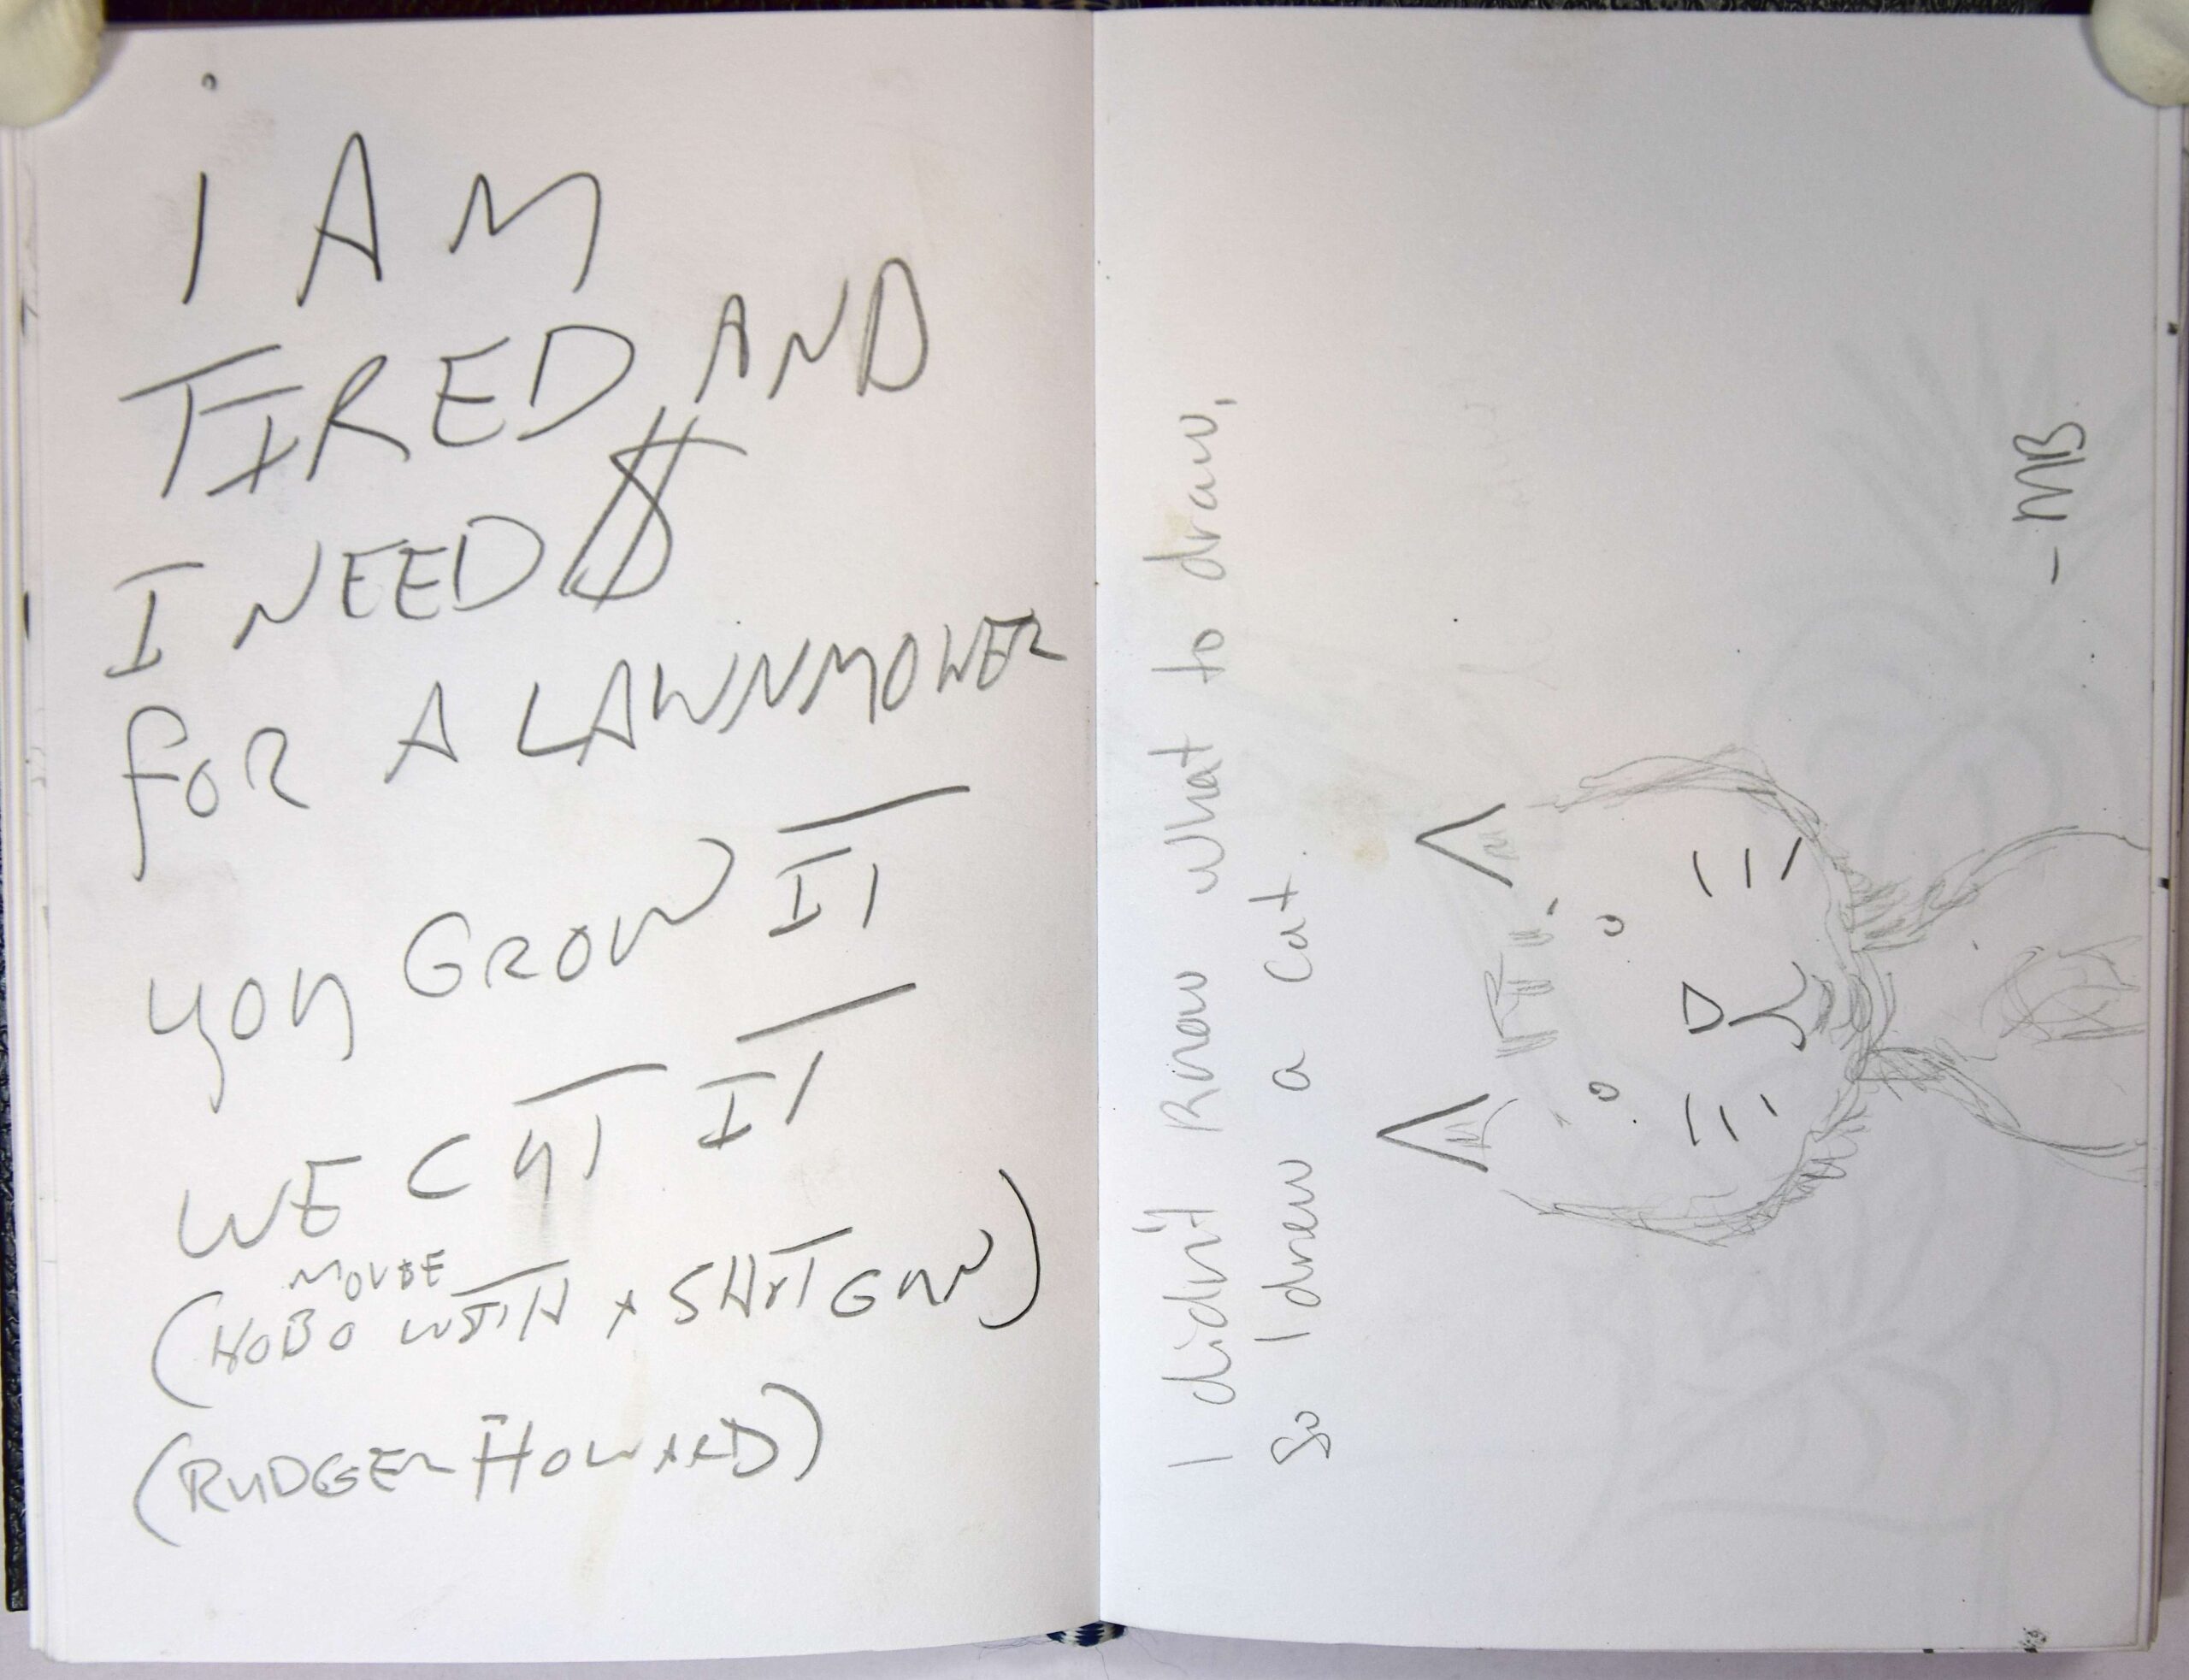 i AM
TIRED AND
I NEED $
FOR A LAWNMOWER
YOU GROW IT
WE CUT IT
MOVIE
(HOBO WITH A SHOTGUN)
(RUDGER HOWARD)
I didn't know what to draw,
So I drew a cat.
-MB